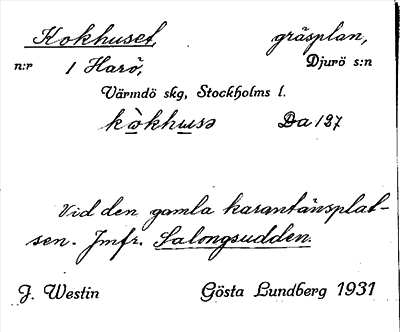 Kokhuset, gräsplan,
n:r 1 Harö, Djurö s:n
Värmdö skg, Stockholms l.
kòkhusə Da 127
Vid den gamla karantänsplat-
sen. Jmfr. Salongsudden.
J. Westin Gösta Lundberg 1931